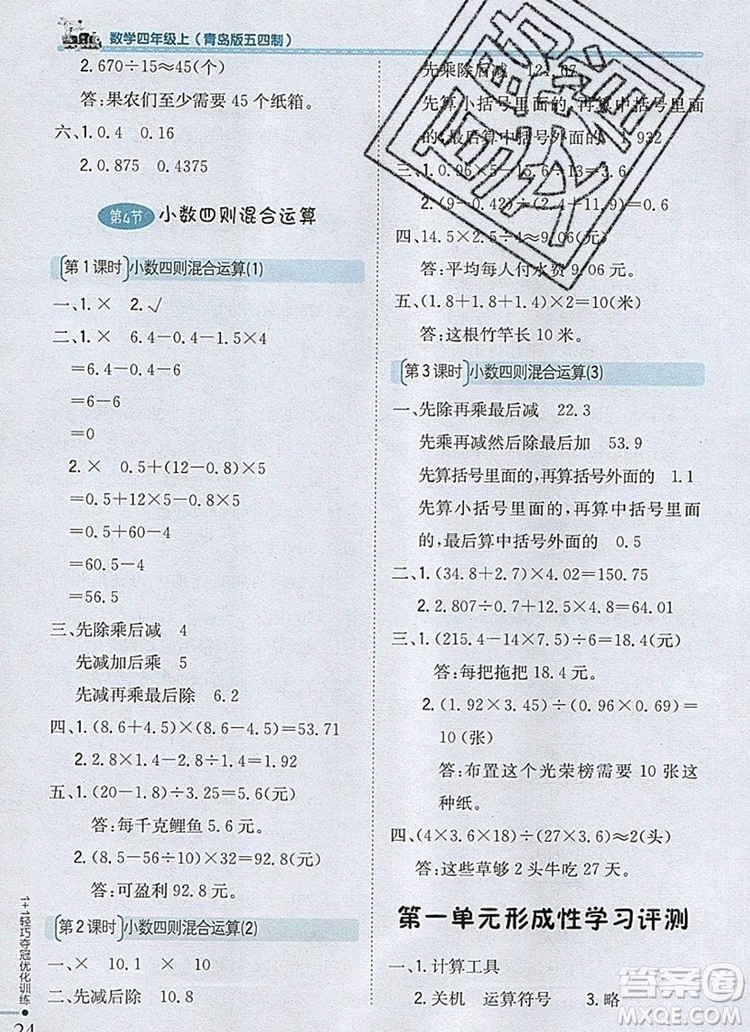 数学四年级上（青岛版五四制）
2. 670÷15≈45(个)
答:果农们至少需要 45 个纸箱。
六、1. 0.4 0.16
2. 0.875 0.4375
第4节 小数四则混合运算
第 1 课时 小数四则混合运算(1)
一、1. × 2. √
二、1. × 6.4-0.4-1.5×4
=6.4-0.4-6
=6-6
=0
2. × 0.5+(12-0.8)×5
=0.5+12×5-0.8×5
=0.5+60-4
=60.5-4
=56.5
三、先除乘后减 4
先减加后乘 5
先减再乘最后除 6.2
四、1. (8.6+4.5)×(8.6-4.5)=53.71
2. 2.8×1.4-2.8÷1.4=1.92
五、1. (20-1.8)÷3.25=5.6(元)
答:每千克鲤鱼 5.6 元。
2. (8.5-56÷10)×32=92.8(元)
答:可盈利 92.8 元。
第 2 课时 小数四则混合运算(2)
一、× 10.1 × 10
二、先减后除 10.8
先乘除后减 121.67
先算小括号里面的,再算中括号里面
的,最后算中括号外面的 1.932
三、1. 0.96×5
2. (9.1
=0.6
四、14.5×2.5÷4≈9.06(元)
答:平均每人付水费 9.06 元。
五、(1.8+1.8+1.4)×2=10(米)
答:这根竹竿长 10 米。
第 3 课时 小数四则混合运算(3)
一、先除再乘最后减 22.3
先乘再减然后除最后加 53.9
先算括号里面的,再算括号外面的 1.1
先算小括号里面的,再算中括号里面的,
最后算中括号外面的 0.5
二、1. (34.8+2.7)×4.02=150.75
2. 2.807÷0.7+1.2×0.5=4.61
三、1. (215.4-14×7.5)÷6=18.4(元)
答:每把拖把 18.4 元。
2. (1.92×3.45)÷(0.92×0.72)≈
10(张)
答:布置这个光荣榜需要 10 张这
种纸。
四、(4×3.6×18)÷(27×3.6)≈2(头)
答:这些草够 2 头牛吃 27 天。
第一单元形成性学习评测
一、1. 计算工具
2. 关机 运算符号 3. 略
1+1轻巧夺冠优化训练
24
答案圈
MXQE.COM